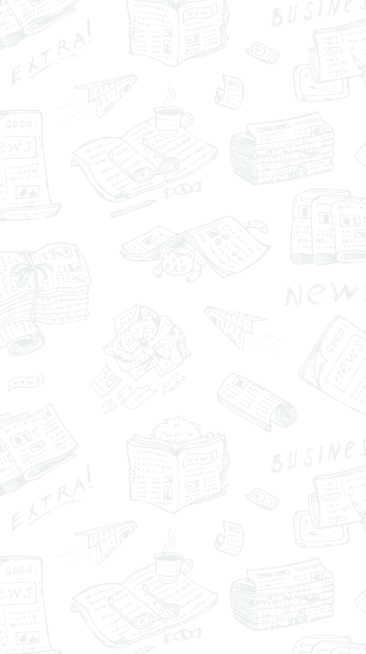 BUSINES
EXTRA!
GOOD
EWS
NEW
GOOD
NEWS
NEWS
BUSINES
EXTRA!
GOOD
EWS